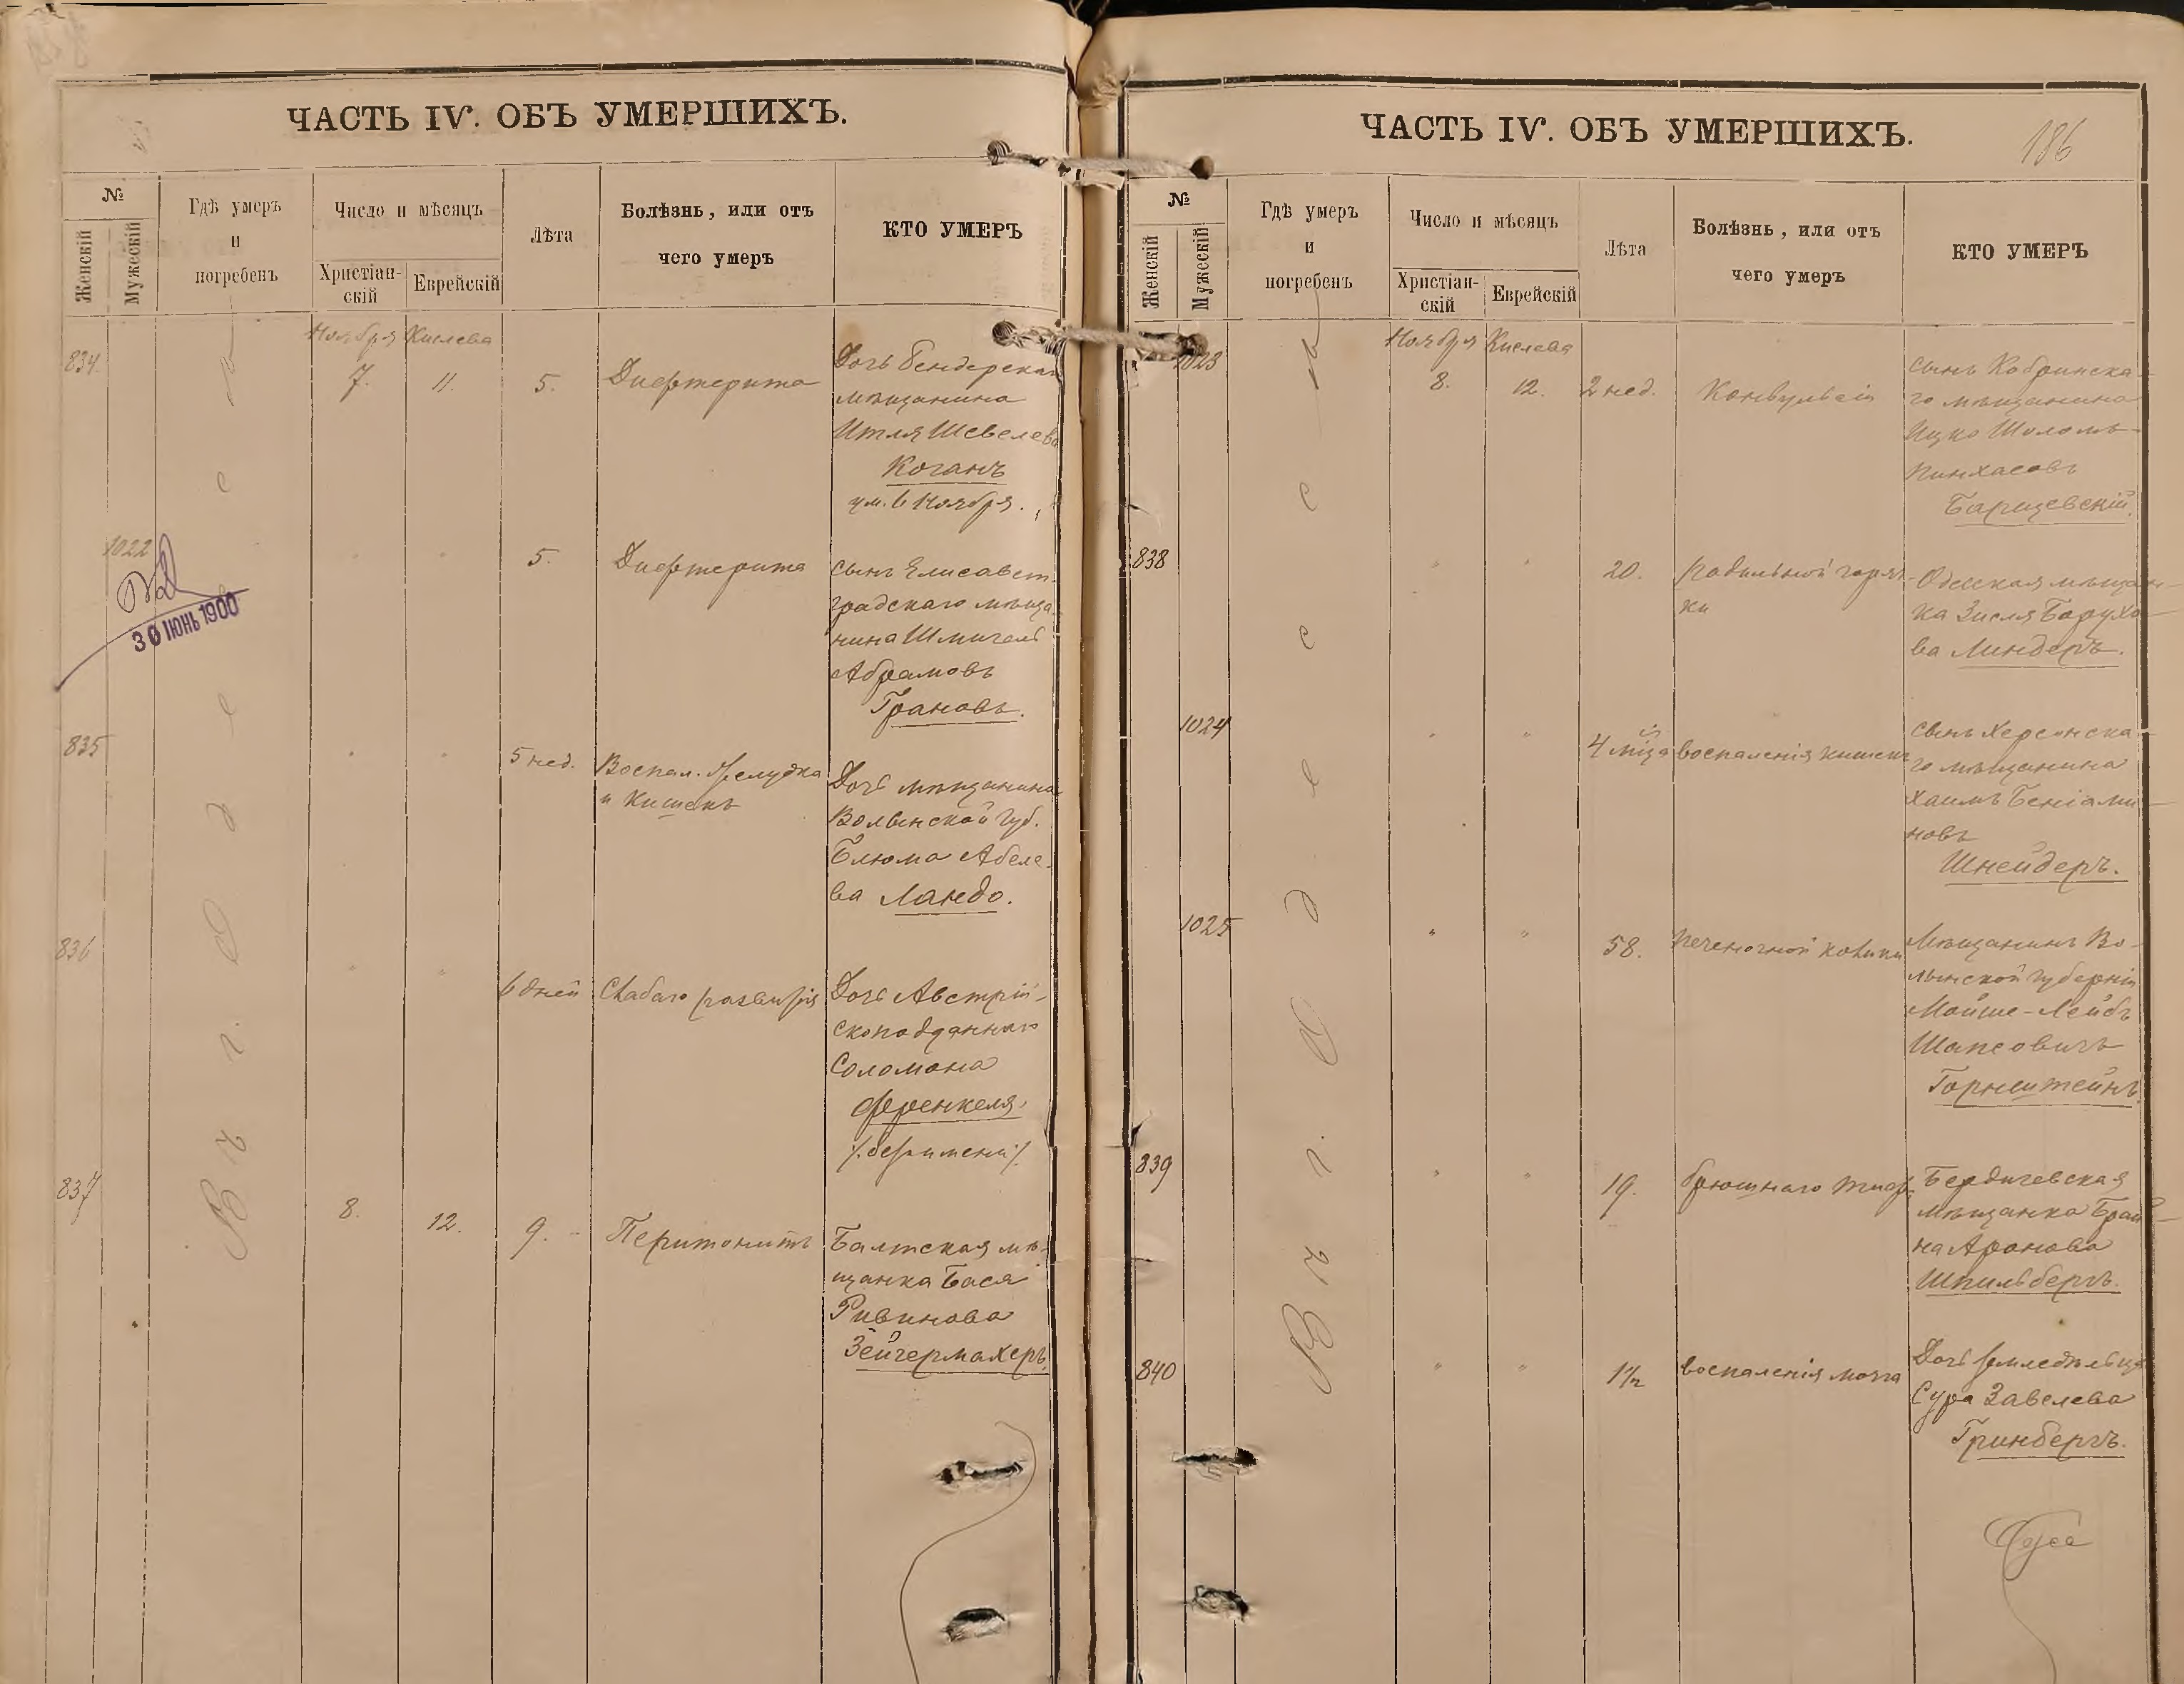 ЧАСТЬ IV. ОБЪ УМЕРШИХЪ.
№
Женскій
Мужескій
Гдѣ умеръ
и
погребенъ
Число и мѣсяцъ
Христіан-
скій
Еврейскій
Лѣта
Болѣзнь, или отъ
чего умеръ
КТО УМЕРЪ
Въ г. Одессѣ
Ноября Кислева
834. 7. 11. 5. Дифтерита
Дочь Бендерскаго
мѣщанина
Итля Шевелева
Коганъ
ум. 6 Ноября.
1022 " " 5. Дифтерита
30 ІЮНЬ 1900
Сынъ Елисавет-
градскаго мѣща-
нина Шмигель
Абрамовъ
Грановъ.
835 " " 5 нед. Воспал. желудка
и кишекъ
Дочь мѣщанина
Волынской губ.
Блюма Абеле-
ва Ландо.
836 " " 6 дней Слабаго развитія
Дочь Австрій-
скоподданнаго
Соломона
Френкеля.
/.без имени/.
837 8. 12. 9. Перитонитъ
Балтская мѣ-
щанка Бася
Ривинова
Зейгермахеръ.
ЧАСТЬ IV. ОБЪ УМЕРШИХЪ.
186
№
Женскій
Мужескій
Гдѣ умеръ
и
погребенъ
Число и мѣсяцъ
Христіан-
скій
Еврейскій
Лѣта
Болѣзнь, или отъ
чего умеръ
КТО УМЕРЪ
Въ г. Одессѣ
Ноября Кислева
1023 8. 12. 2 нед. Конвульсіи
Сынъ Кобринска-
го мѣщанина
Ицко Шоломъ-
Пинхасовъ
Барщевскій.
838 " " 20. родильной горяч-
ки
Одесская мѣщан-
ка Зисля Борухо-
ва Линдеръ.
1024 " " 4 мѣсяца воспаленія кишекъ
Сынъ Херсонска-
го мѣщанина
Хаимъ Беніами-
новъ
Шнейдеръ.
1025 " " 58. печеночной колики
Мѣщанинъ Во-
лынской губерніи
Мойше-Лейбъ
Шапсовичъ
Горнштейнъ.
839 " " 19. брюшнаго тифа
Бердичевская
мѣщанка Брай-
на Аронова
Шпильбергъ.
840 " " 1½ воспаленія мозга
Дочь земледѣльца
Сура Завелева
Гринбергъ.